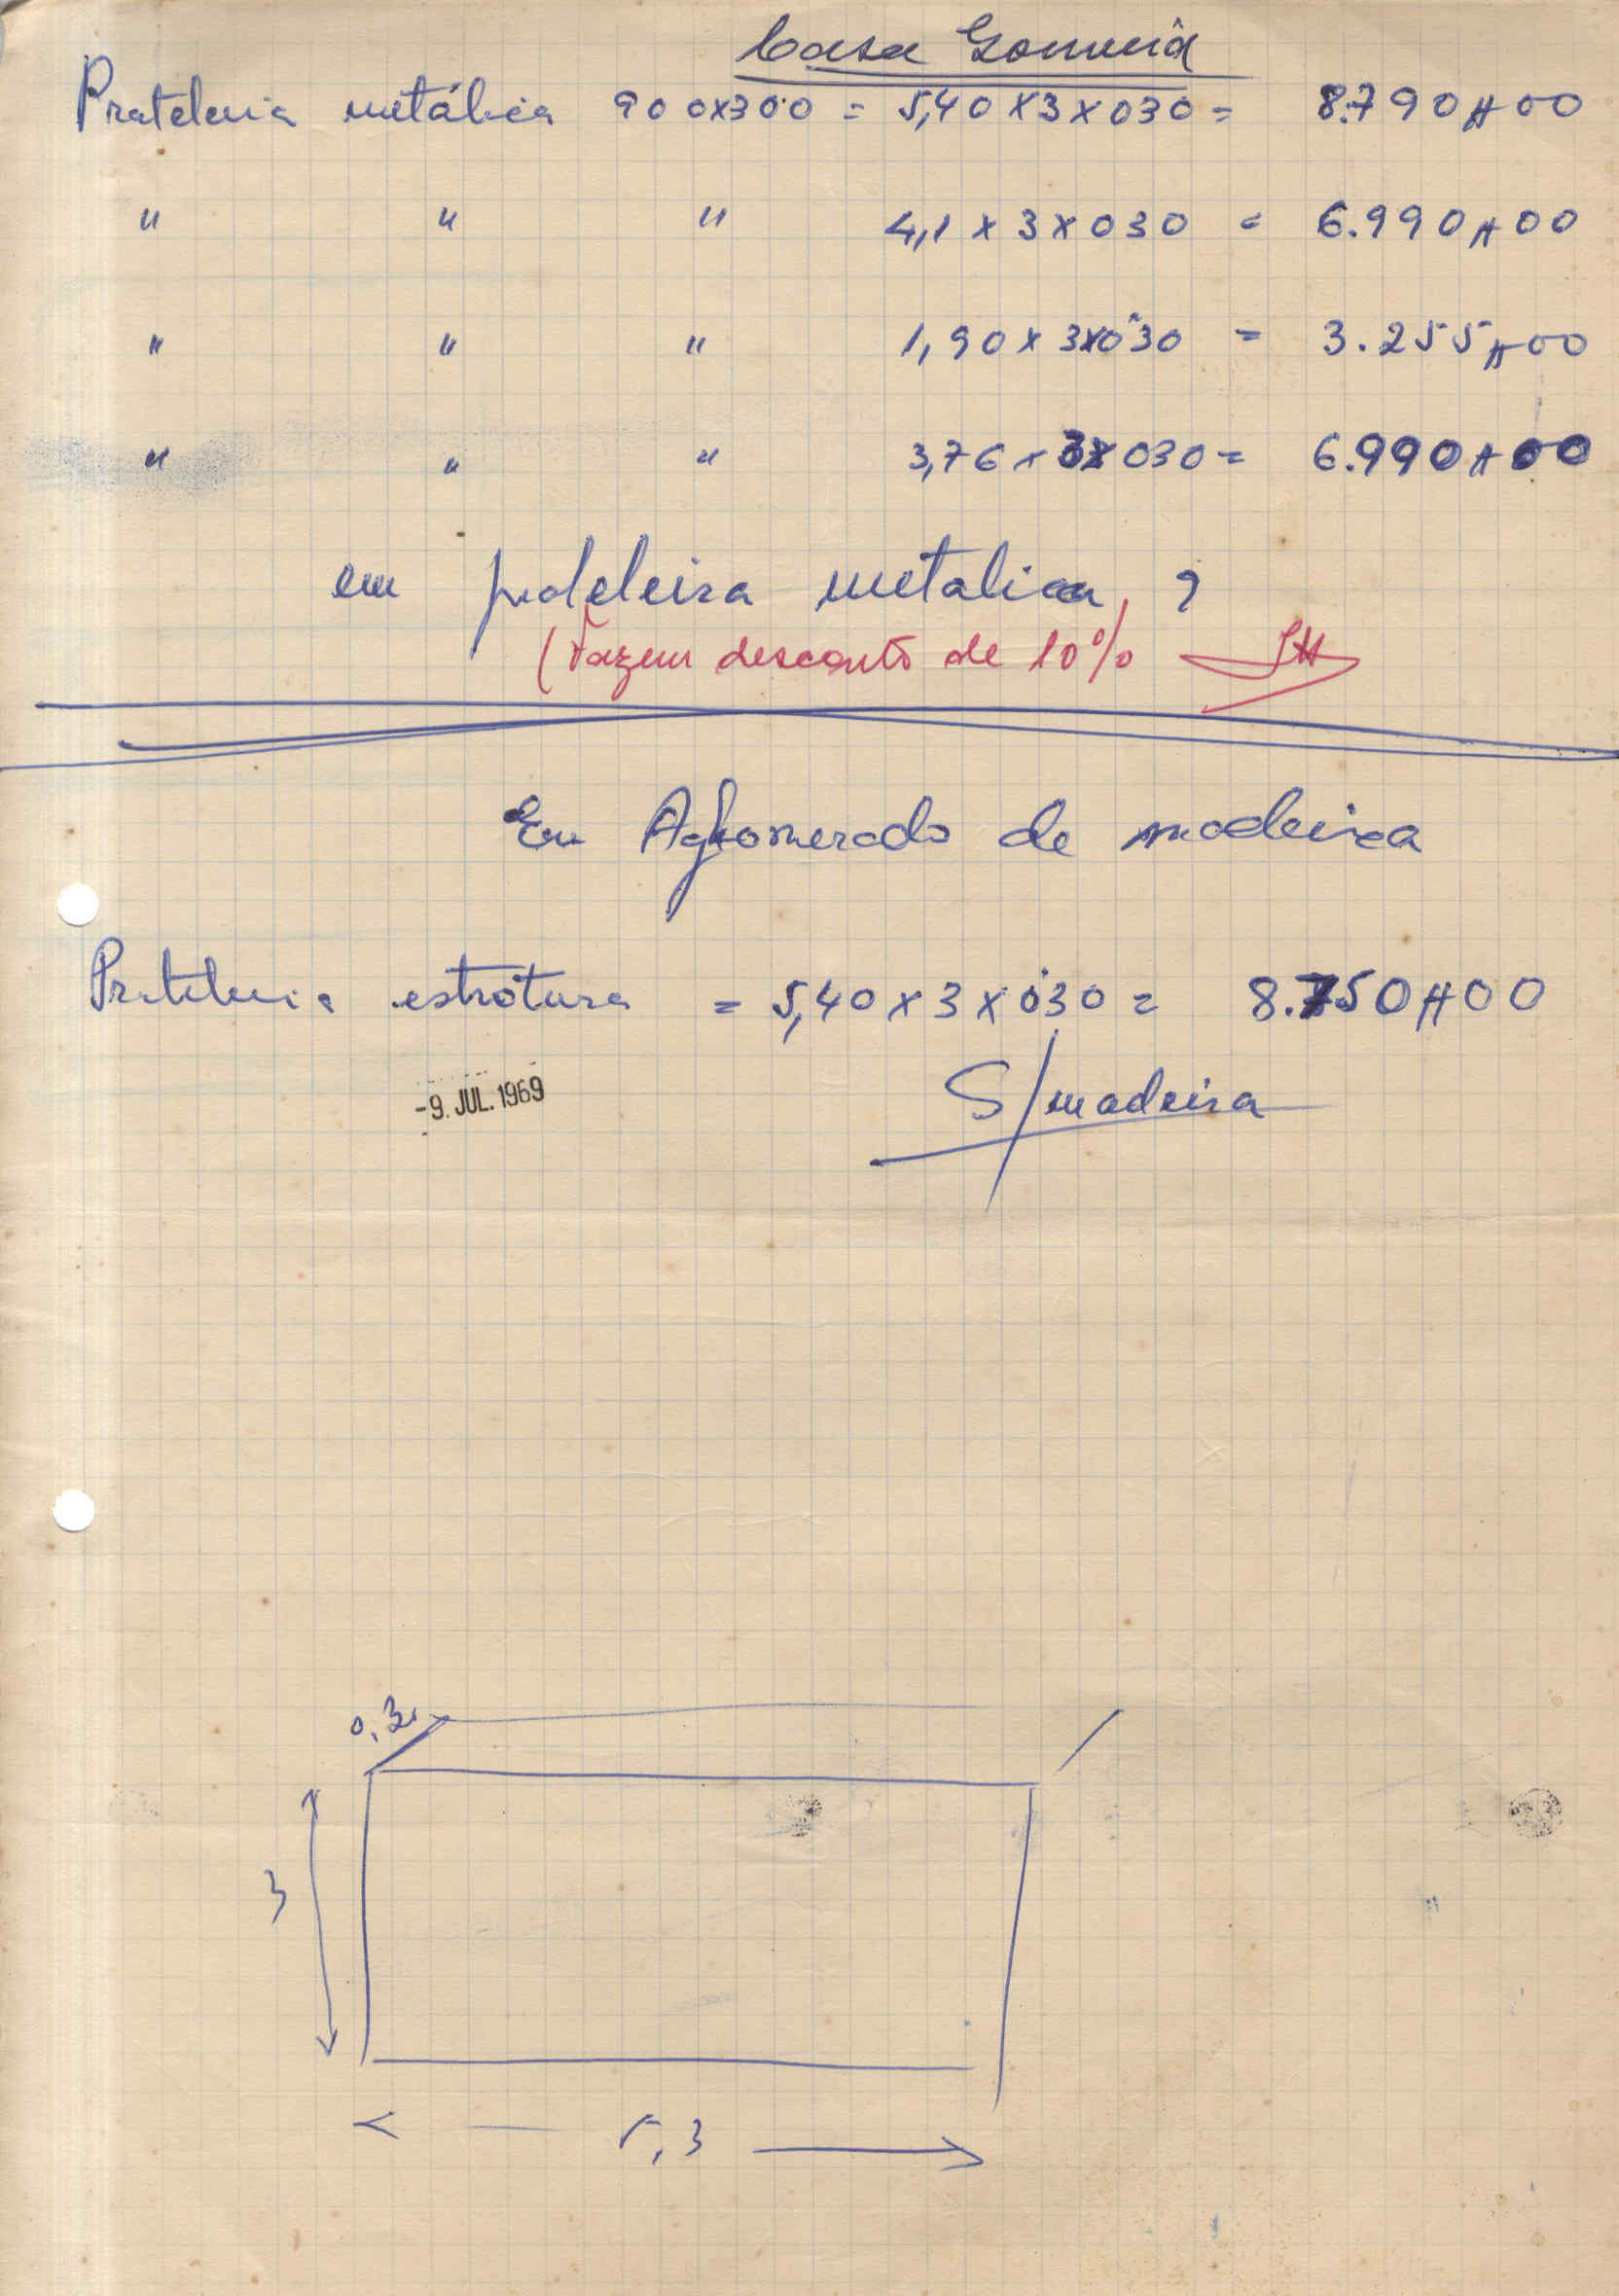 Casa Gomunâ
Prateleria metálica 900x300 = 5,40 x 3 x 030 = 8.790$00
" " " 4,1 x 3 x 030 = 6.990$00
" " " 1,90 x 3x030 = 3.255$00
" " " 3,76 x 3x 030 = 6.990$00
em prateleira metalica ?
(Fazem desconto de 10%
Em Aglomerado de madeira
Prateleria estrotura = 5,40 x 3 x 030 = 8.750$00
S/madeira
-9. JUL. 1969
0,30
3
5,3